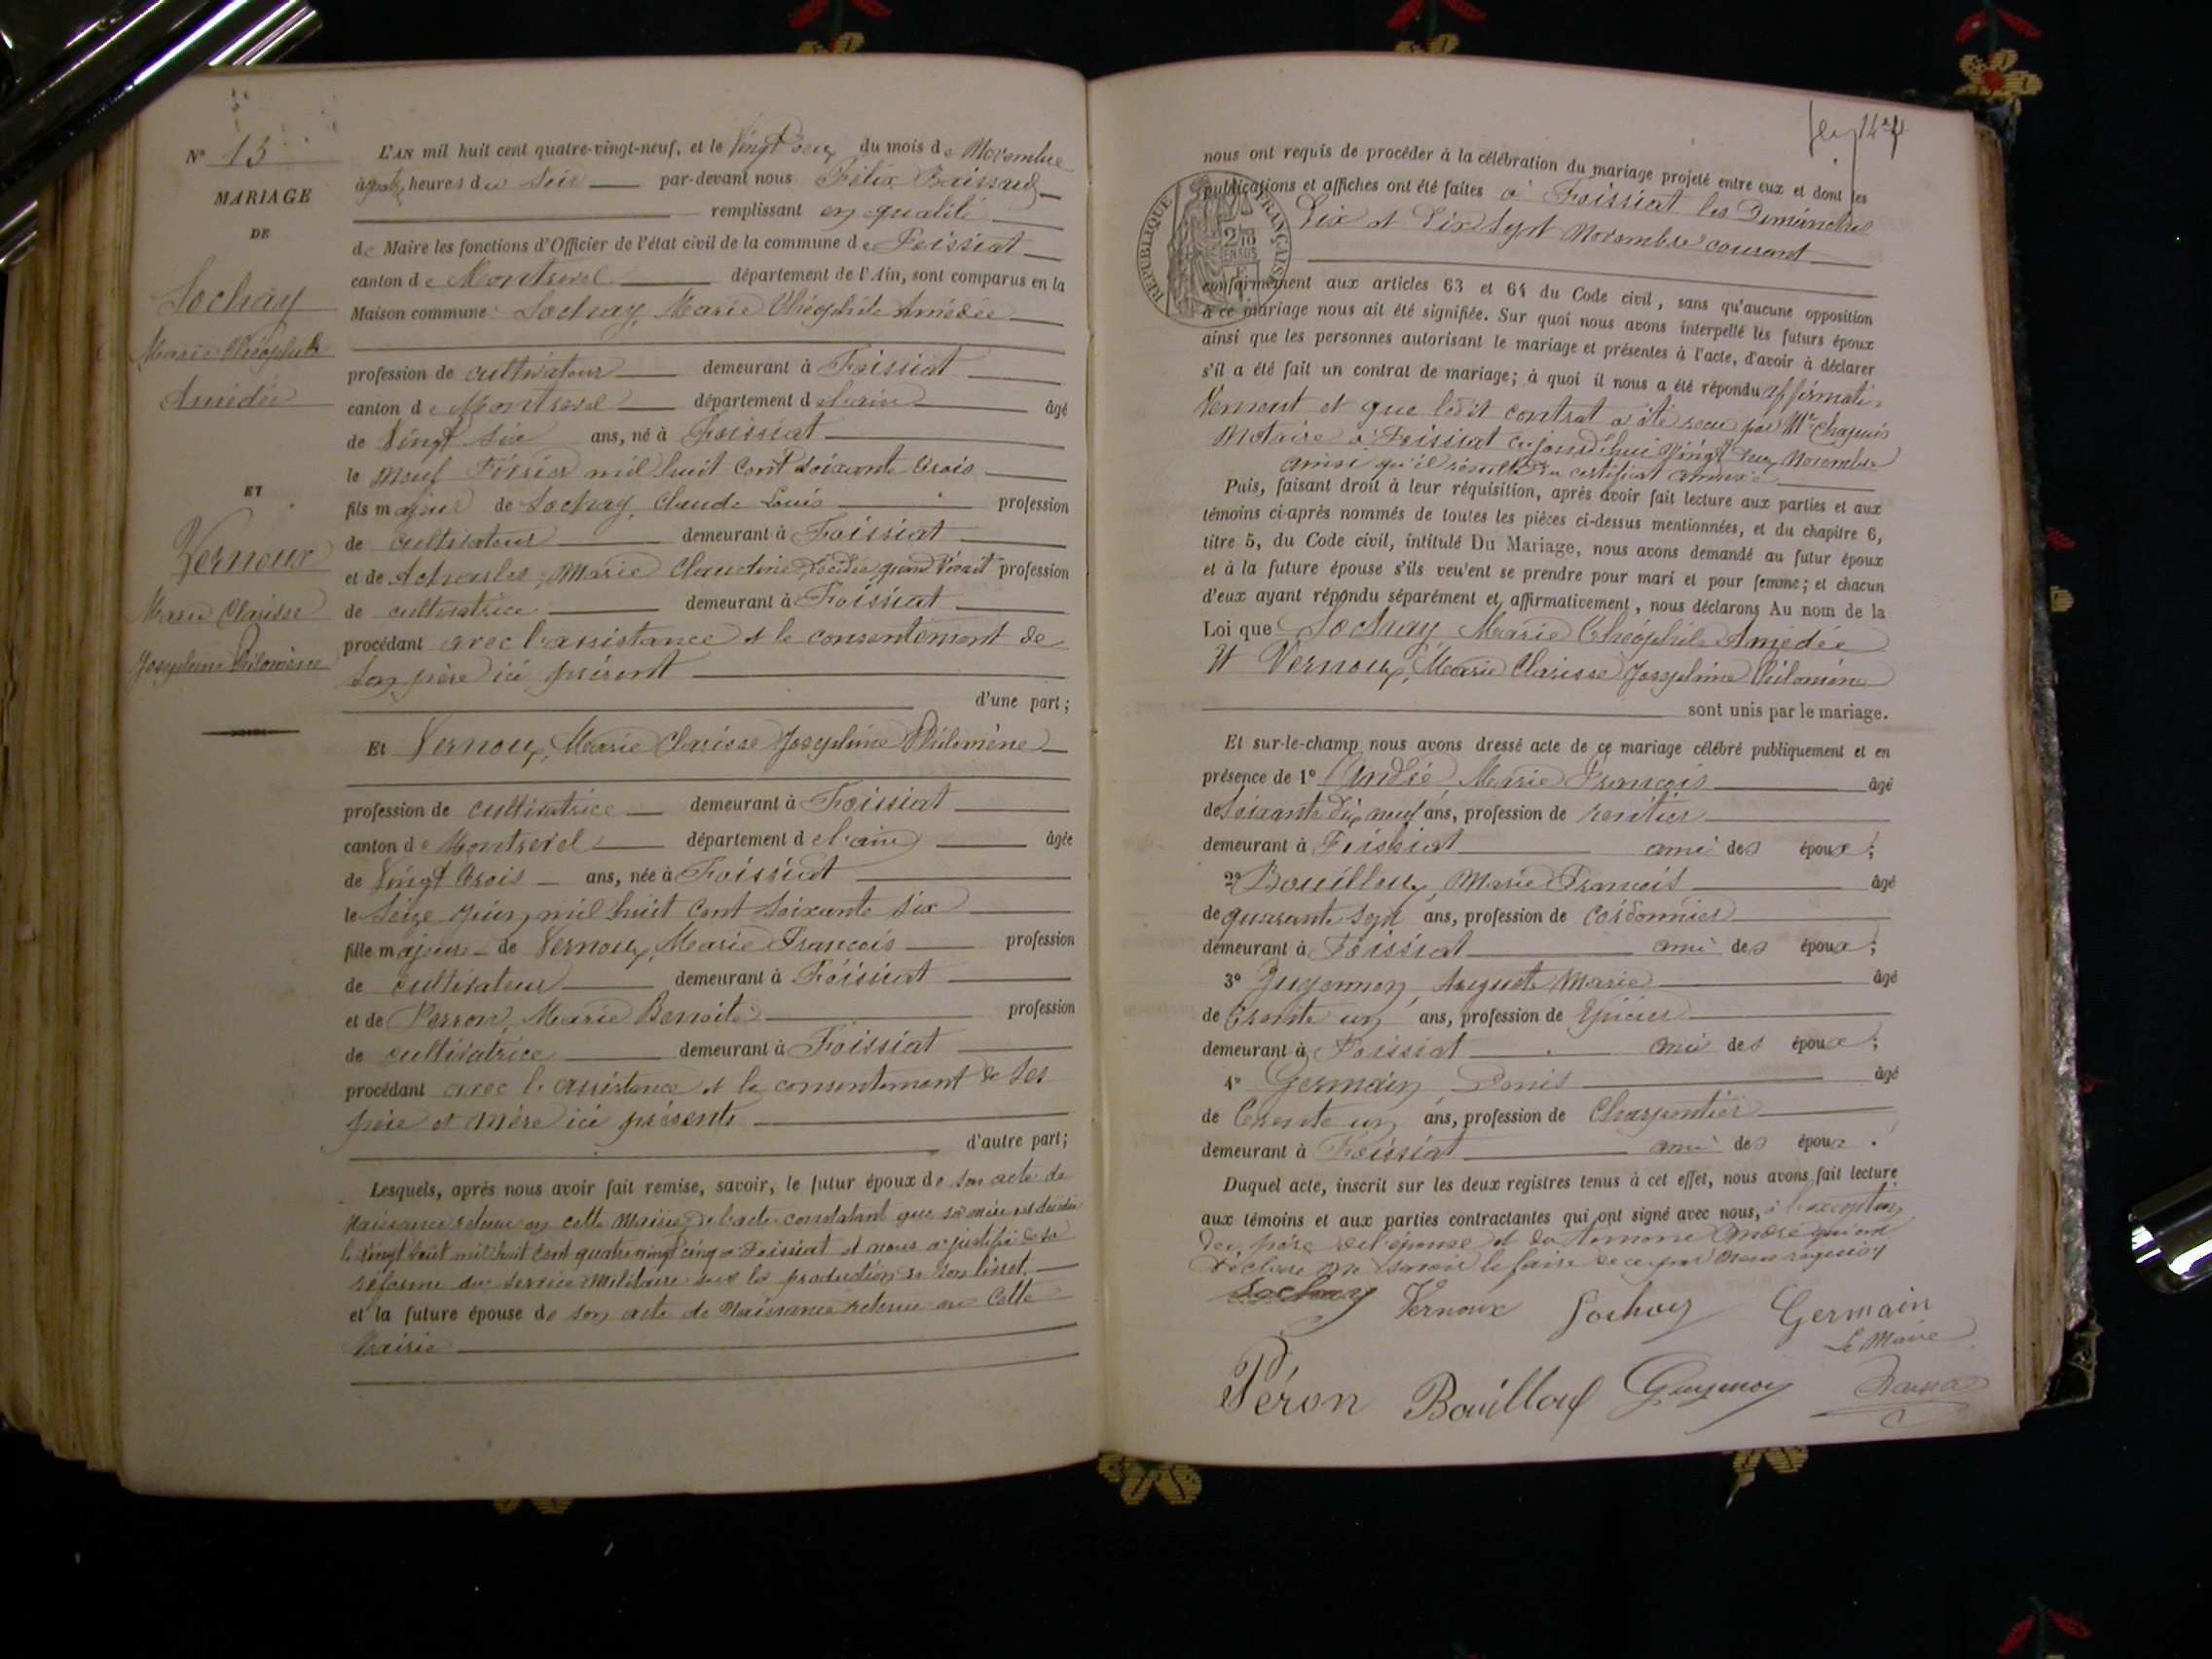 N° 13
MARIAGE
DE
Sochay
Marie Théophile
Amédée
ET
Vernoux
Marie Clarisse
Joséphine Philomène
L'AN mil huit cent quatre-vingt-neuf, et le Vingt Deux du mois de Novembre
à quatre heures du Soir par-devant nous Félix
remplissant en qualité
de Maire les fonctions d'Officier de l'état civil de la commune de Foissiat
canton de Montrevel département de l'Ain, sont comparus en la
Maison commune Sochay, Marie Théophile Amédée
profession de cultivateur demeurant à Foissiat
canton de Montrevel département de l'ain âgé
de Vingt Six ans, né à Foissiat
le neuf Février mil huit Cent soixante trois
fils majeur de Sochay, Claude Louis profession
de cultivateur demeurant à Foissiat
et de Marie Claudine, Décédée quand vivait profession
de cultivatrice demeurant à Foissiat
procédant avec l'assistance et le consentement de
son père ici présent
d'une part;
Et Vernoux, Marie Clarisse Joséphine Philomène
profession de cultivatrice demeurant à Foissiat
canton de Montrevel département de l'ain âgée
de Vingt trois ans, née à Foissiat
le Seize juin mil huit Cent Soixante Six
fille majeure de Vernoux, Marie François profession
de cultivateur demeurant à Foissiat
et de Perron, Marie Benoite profession
de cultivatrice demeurant à Foissiat
procédant avec l'assistance et le consentement de ses
père et mère ici présents
d'autre part;
Lesquels, après nous avoir fait remise, savoir, le futur époux de son acte de
naissance retenu en cette Mairie, de l'acte constatant que sa mère est décédée
le vingt août mil huit Cent quatre vingt cinq à Foissiat et nous a justifié de sa
réforme du service Militaire par la production de son livret.
et la future épouse de son acte de Naissance retenu en Cette
Mairie
nous ont requis de procéder à la célébration du mariage projeté entre eux et dont les
publications et affiches ont été faites à Foissiat les Dimanches
Dix et Dix Sept Novembre courant
RÉPUBLIQUE FRANÇAISE
conformément aux articles 63 et 64 du Code civil, sans qu'aucune opposition
à ce mariage nous ait été signifiée. Sur quoi nous avons interpellé les futurs époux
ainsi que les personnes autorisant le mariage et présentes à l'acte, d'avoir à déclarer
s'il a été fait un contrat de mariage; à quoi il nous a été répondu affirmati-
vement et que ledit contrat a été reçu par Me Chapuis
Notaire à Foissiat cejourd'hui Vingt deux Novembre
ainsi qu'il résulte du certificat annexé
Puis, faisant droit à leur réquisition, après avoir fait lecture aux parties et aux
témoins ci-après nommés de toutes les pièces ci-dessus mentionnées, et du chapitre 6,
titre 5, du Code civil, intitulé Du Mariage, nous avons demandé au futur époux
et à la future épouse s'ils veulent se prendre pour mari et pour femme; et chacun
d'eux ayant répondu séparément et affirmativement, nous déclarons Au nom de la
Loi que Sochay Marie Théophile Amédée
Et Vernoux, Marie Clarisse Joséphine Philomène
sont unis par le mariage.
Et sur-le-champ nous avons dressé acte de ce mariage célébré publiquement et en
présence de 1° André Marie François âgé
de Soixante Dix neuf ans, profession de rentier
demeurant à Foissiat ami des époux;
2° Bouilloux, Marie François âgé
de quarante sept ans, profession de cordonnier
demeurant à Foissiat ami des époux;
3° Guyennon, Auguste Marie âgé
de trente un ans, profession de Epicier
demeurant à Foissiat ami des époux;
4° Germain, Denis âgé
de trente un ans, profession de Charpentier
demeurant à Foissiat ami des époux.
Duquel acte, inscrit sur les deux registres tenus à cet effet, nous avons fait lecture
aux témoins et aux parties contractantes qui ont signé avec nous, à l'exception
du père de l'épouse et du témoin André qui ont
déclaré ne savoir le faire de ce par nous requis
Sochay Vernoux Sochay Germain
Le Maire
Péron Bouilloux Guyennon